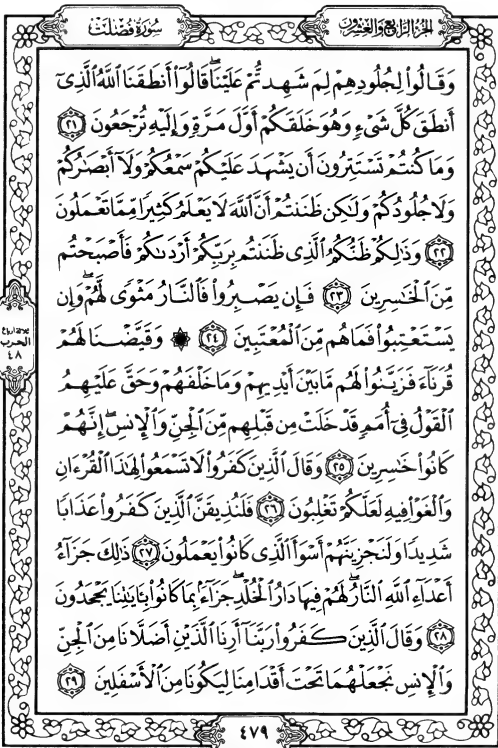 سُورَةُ فُصِّلَت
الجُزءُ الرَّابِعُ وَالعِشْرُونَ
وَقَالُوا۟ لِجُلُودِهِمْ لِمَ شَهِدتُّمْ عَلَيْنَا ۖ قَالُوٓا۟ أَنطَقَنَا ٱللَّهُ ٱلَّذِىٓ
أَنطَقَ كُلَّ شَىْءٍ وَهُوَ خَلَقَكُمْ أَوَّلَ مَرَّةٍ وَإِلَيْهِ تُرْجَعُونَ ٢١
وَمَا كُنتُمْ تَسْتَتِرُونَ أَن يَشْهَدَ عَلَيْكُمْ سَمْعُكُمْ وَلَآ أَبْصَٰرُكُمْ
وَلَا جُلُودُكُمْ وَلَٰكِن ظَنَنتُمْ أَنَّ ٱللَّهَ لَا يَعْلَمُ كَثِيرًا مِّمَّا تَعْمَلُونَ
٢٢ وَذَٰلِكُمْ ظَنُّكُمُ ٱلَّذِى ظَنَنتُم بِرَبِّكُمْ أَرْدَىٰكُمْ فَأَصْبَحْتُم
مِّنَ ٱلْخَٰسِرِينَ ٢٣ فَإِن يَصْبِرُوا۟ فَٱلنَّارُ مَثْوًى لَّهُمْ ۖ وَإِن
يَسْتَعْتِبُوا۟ فَمَا هُم مِّنَ ٱلْمُعْتَبِينَ ٢٤ ۞ وَقَيَّضْنَا لَهُمْ
قُرَنَآءَ فَزَيَّنُوا۟ لَهُم مَّا بَيْنَ أَيْدِيهِمْ وَمَا خَلْفَهُمْ وَحَقَّ عَلَيْهِمُ
ٱلْقَوْلُ فِىٓ أُمَمٍ قَدْ خَلَتْ مِن قَبْلِهِم مِّنَ ٱلْجِنِّ وَٱلْإِنسِ ۖ إِنَّهُمْ
كَانُوا۟ خَٰسِرِينَ ٢٥ وَقَالَ ٱلَّذِينَ كَفَرُوا۟ لَا تَسْمَعُوا۟ لِهَٰذَا ٱلْقُرْءَانِ
وَٱلْغَوْا۟ فِيهِ لَعَلَّكُمْ تَغْلِبُونَ ٢٦ فَلَنُذِيقَنَّ ٱلَّذِينَ كَفَرُوا۟ عَذَابًا
شَدِيدًا وَلَنَجْزِيَنَّهُمْ أَسْوَأَ ٱلَّذِى كَانُوا۟ يَعْمَلُونَ ٢٧ ذَٰلِكَ جَزَآءُ
أَعْدَآءِ ٱللَّهِ ٱلنَّارُ ۖ لَهُمْ فِيهَا دَارُ ٱلْخُلْدِ ۖ جَزَآءًۢ بِمَا كَانُوا۟ بِـَٔايَٰتِنَا يَجْحَدُونَ
٢٨ وَقَالَ ٱلَّذِينَ كَفَرُوا۟ رَبَّنَآ أَرِنَا ٱلَّذَيْنِ أَضَلَّانَا مِنَ ٱلْجِنِّ
وَٱلْإِنسِ نَجْعَلْهُمَا تَحْتَ أَقْدَامِنَا لِيَكُونَا مِنَ ٱلْأَسْفَلِينَ ٢٩
ثلاثة أرباع
الحزب
٤٨
٤٧٩